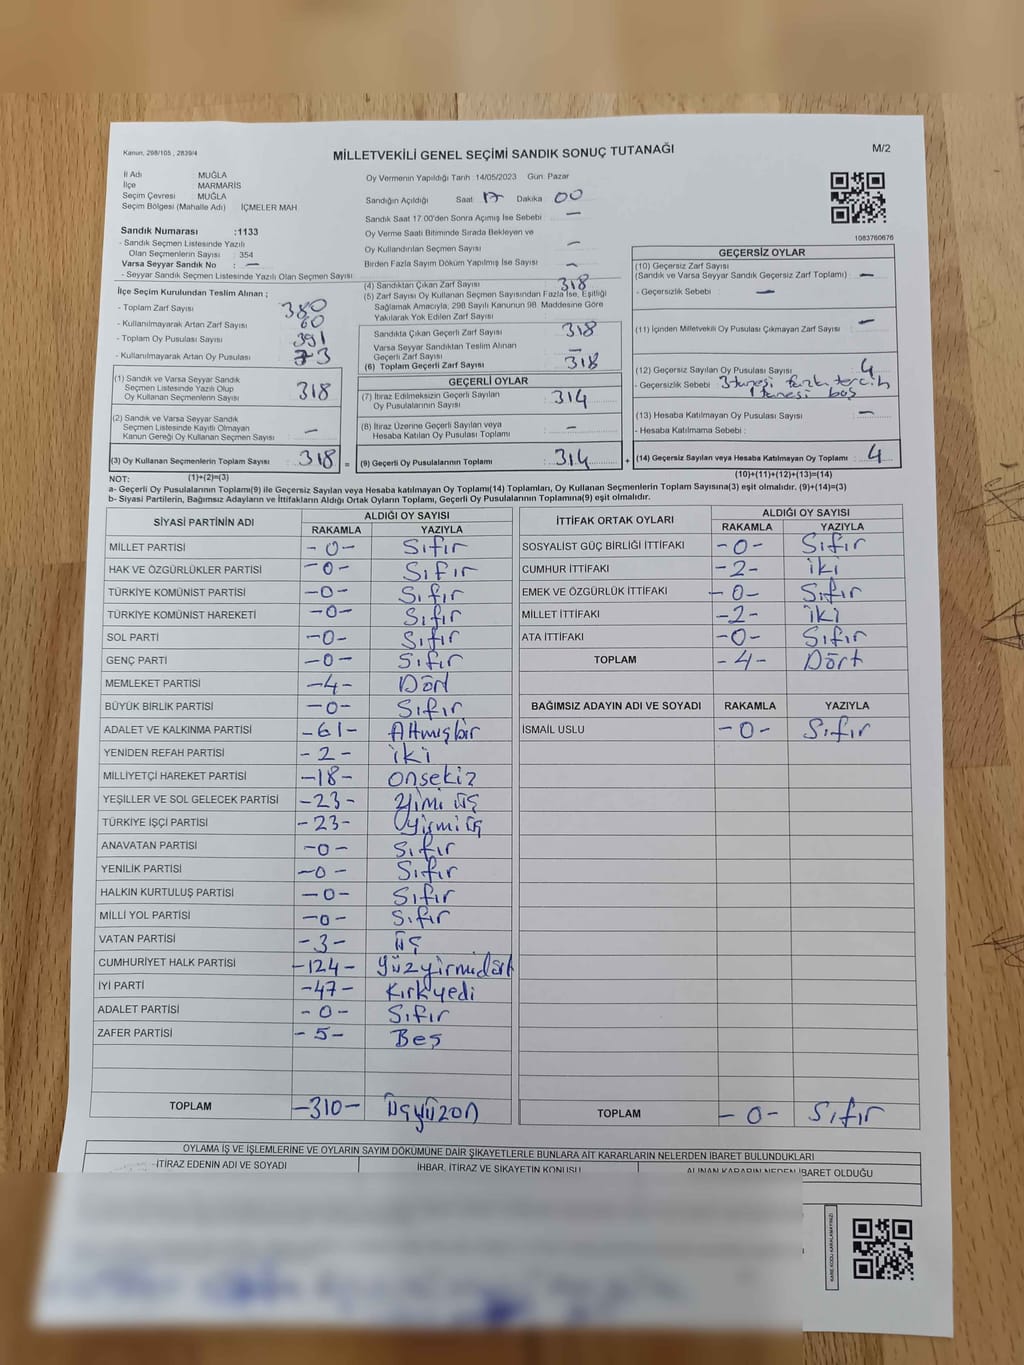 Kanun, 298/105 , 2839/4
MİLLETVEKİLİ GENEL SEÇİMİ SANDIK SONUÇ TUTANAĞI
M/2
İl Adı : MUĞLA
İlçe : MARMARİS
Seçim Çevresi : MUĞLA
Seçim Bölgesi (Mahalle Adı) İÇMELER MAH.
Sandık Numarası :1133
- Sandık Seçmen Listesinde Yazılı
Olan Seçmenlerin Sayısı : 354
Varsa Seyyar Sandık No : —
- Seyyar Sandık Seçmen Listesinde Yazılı Olan Seçmen Sayısı
Oy Vermenin Yapıldığı Tarih :14/05/2023 Gün: Pazar
Sandığın Açıldığı Saat 17 Dakika 00
Sandık Saat 17.00'den Sonra Açımış İse Sebebi : —
Oy Verme Saati Bitiminde Sırada Bekleyen ve
Oy Kullandırılan Seçmen Sayısı —
Birden Fazla Sayım Döküm Yapılmış İse Sayısı —
1083760676
İlçe Seçim Kurulundan Teslim Alınan ;
- Toplam Zarf Sayısı : 380
- Kullanılmayarak Artan Zarf Sayısı : 60
- Toplam Oy Pusulası Sayısı : 391
- Kullanılmayarak Artan Oy Pusulası : 73
(1) Sandık ve Varsa Seyyar Sandık
Seçmen Listesinde Yazılı Olup
Oy Kullanan Seçmenlerin Sayısı 318
(2) Sandık ve Varsa Seyyar Sandık
Seçmen Listesinde Kayıtlı Olmayan
Kanun Gereği Oy Kullanan Seçmen Sayısı —
(3) Oy Kullanan Seçmenlerin Toplam Sayısı 318 =
(4) Sandıktan Çıkan Zarf Sayısı 318
(5) Zarf Sayısı Oy Kullanan Seçmen Sayısından Fazla İse, Eşitliği
Sağlamak Amacıyla, 298 Sayılı Kanunun 98. Maddesine Göre
Yakılarak Yok Edilen Zarf Sayısı :
Sandıkta Çıkan Geçerli Zarf Sayısı 318
Varsa Seyyar Sandıktan Teslim Alınan
Geçerli Zarf Sayısı —
(6) Toplam Geçerli Zarf Sayısı 318
GEÇERLİ OYLAR
(7) İtiraz Edilmeksizin Geçerli Sayılan
Oy Pusulalarının Sayısı 314
(8) İtiraz Üzerine Geçerli Sayılan veya
Hesaba Katılan Oy Pusulası Toplamı —
(9) Geçerli Oy Pusulalarının Toplamı 314 +
GEÇERSİZ OYLAR
(10) Geçersiz Zarf Sayısı
(Sandık ve Varsa Seyyar Sandık Geçersiz Zarf Toplamı) —
- Geçersizlik Sebebi : —
(11) İçinden Milletvekili Oy Pusulası Çıkmayan Zarf Sayısı —
(12) Geçersiz Sayılan Oy Pusulası Sayısı 4
- Geçersizlik Sebebi 3 tanesi fazla tercih
1 tanesi boş
(13) Hesaba Katılmayan Oy Pusulası Sayısı —
- Hesaba Katılmama Sebebi :
(14) Geçersiz Sayılan veya Hesaba Katılmayan Oy Toplamı 4
NOT: (1)+(2)=(3) (10)+(11)+(12)+(13)=(14)
a- Geçerli Oy Pusulalarının Toplamı(9) ile Geçersiz Sayılan veya Hesaba katılmayan Oy Toplamı(14) Toplamları, Oy Kullanan Seçmenlerin Toplam Sayısına(3) eşit olmalıdır. (9)+(14)=(3)
b- Siyasi Partilerin, Bağımsız Adayların ve İttifakların Aldığı Ortak Oyların Toplamı, Geçerli Oy Pusulalarının Toplamına(9) eşit olmalıdır.
SİYASİ PARTİNİN ADI ALDIĞI OY SAYISI
RAKAMLA YAZIYLA
MİLLET PARTİSİ -0- Sıfır
HAK VE ÖZGÜRLÜKLER PARTİSİ -0- Sıfır
TÜRKİYE KOMÜNİST PARTİSİ -0- Sıfır
TÜRKİYE KOMÜNİST HAREKETİ -0- Sıfır
SOL PARTİ -0- Sıfır
GENÇ PARTİ -0- Sıfır
MEMLEKET PARTİSİ -4- Dört
BÜYÜK BİRLİK PARTİSİ -0- Sıfır
ADALET VE KALKINMA PARTİSİ -61- Altmışbir
YENİDEN REFAH PARTİSİ -2- iki
MİLLİYETÇİ HAREKET PARTİSİ -18- onsekiz
YEŞİLLER VE SOL GELECEK PARTİSİ -23- yimi üç
TÜRKİYE İŞÇİ PARTİSİ -23- yirmi üç
ANAVATAN PARTİSİ -0- Sıfır
YENİLİK PARTİSİ -0- Sıfır
HALKIN KURTULUŞ PARTİSİ -0- Sıfır
MİLLİ YOL PARTİSİ -0- Sıfır
VATAN PARTİSİ -3- üç
CUMHURİYET HALK PARTİSİ -124- yüzyirmidört
İYİ PARTİ -47- Kırkyedi
ADALET PARTİSİ -0- Sıfır
ZAFER PARTİSİ -5- Beş
TOPLAM -310- üçyüzon
İTTİFAK ORTAK OYLARI ALDIĞI OY SAYISI
RAKAMLA YAZIYLA
SOSYALİST GÜÇ BİRLİĞİ İTTİFAKI -0- Sıfır
CUMHUR İTTİFAKI -2- iki
EMEK VE ÖZGÜRLÜK İTTİFAKI -0- Sıfır
MİLLET İTTİFAKI -2- iki
ATA İTTİFAKI -0- Sıfır
TOPLAM -4- Dört
BAĞIMSIZ ADAYIN ADI VE SOYADI RAKAMLA YAZIYLA
İSMAİL USLU -0- Sıfır
TOPLAM -0- Sıfır
OYLAMA İŞ VE İŞLEMLERİNE VE OYLARIN SAYIM DÖKÜMÜNE DAİR ŞİKAYETLERLE BUNLARA AİT KARARLARIN NELERDEN İBARET BULUNDUKLARI
İTİRAZ EDENİN ADI VE SOYADI İHBAR, İTİRAZ VE ŞİKAYETİN KONUSU ALINAN KARARIN NEDEN İBARET OLDUĞU
KARE KODU KARALAMAYINIZ!